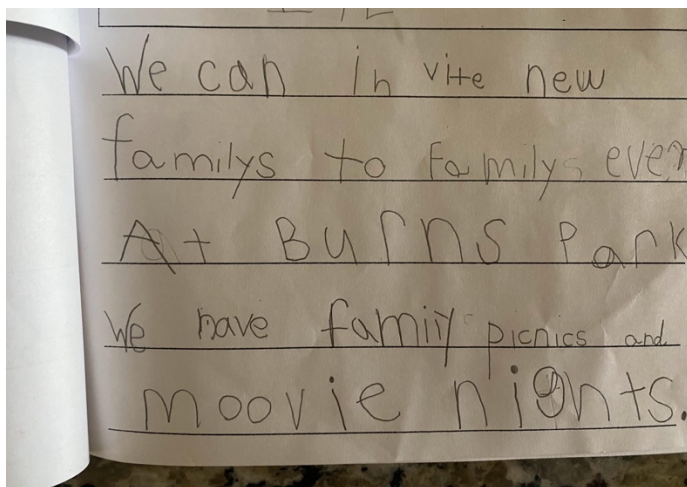 We can in vite new
familys to Familys even
At Burns Park
We have famiiy picnics and
moovie nights.